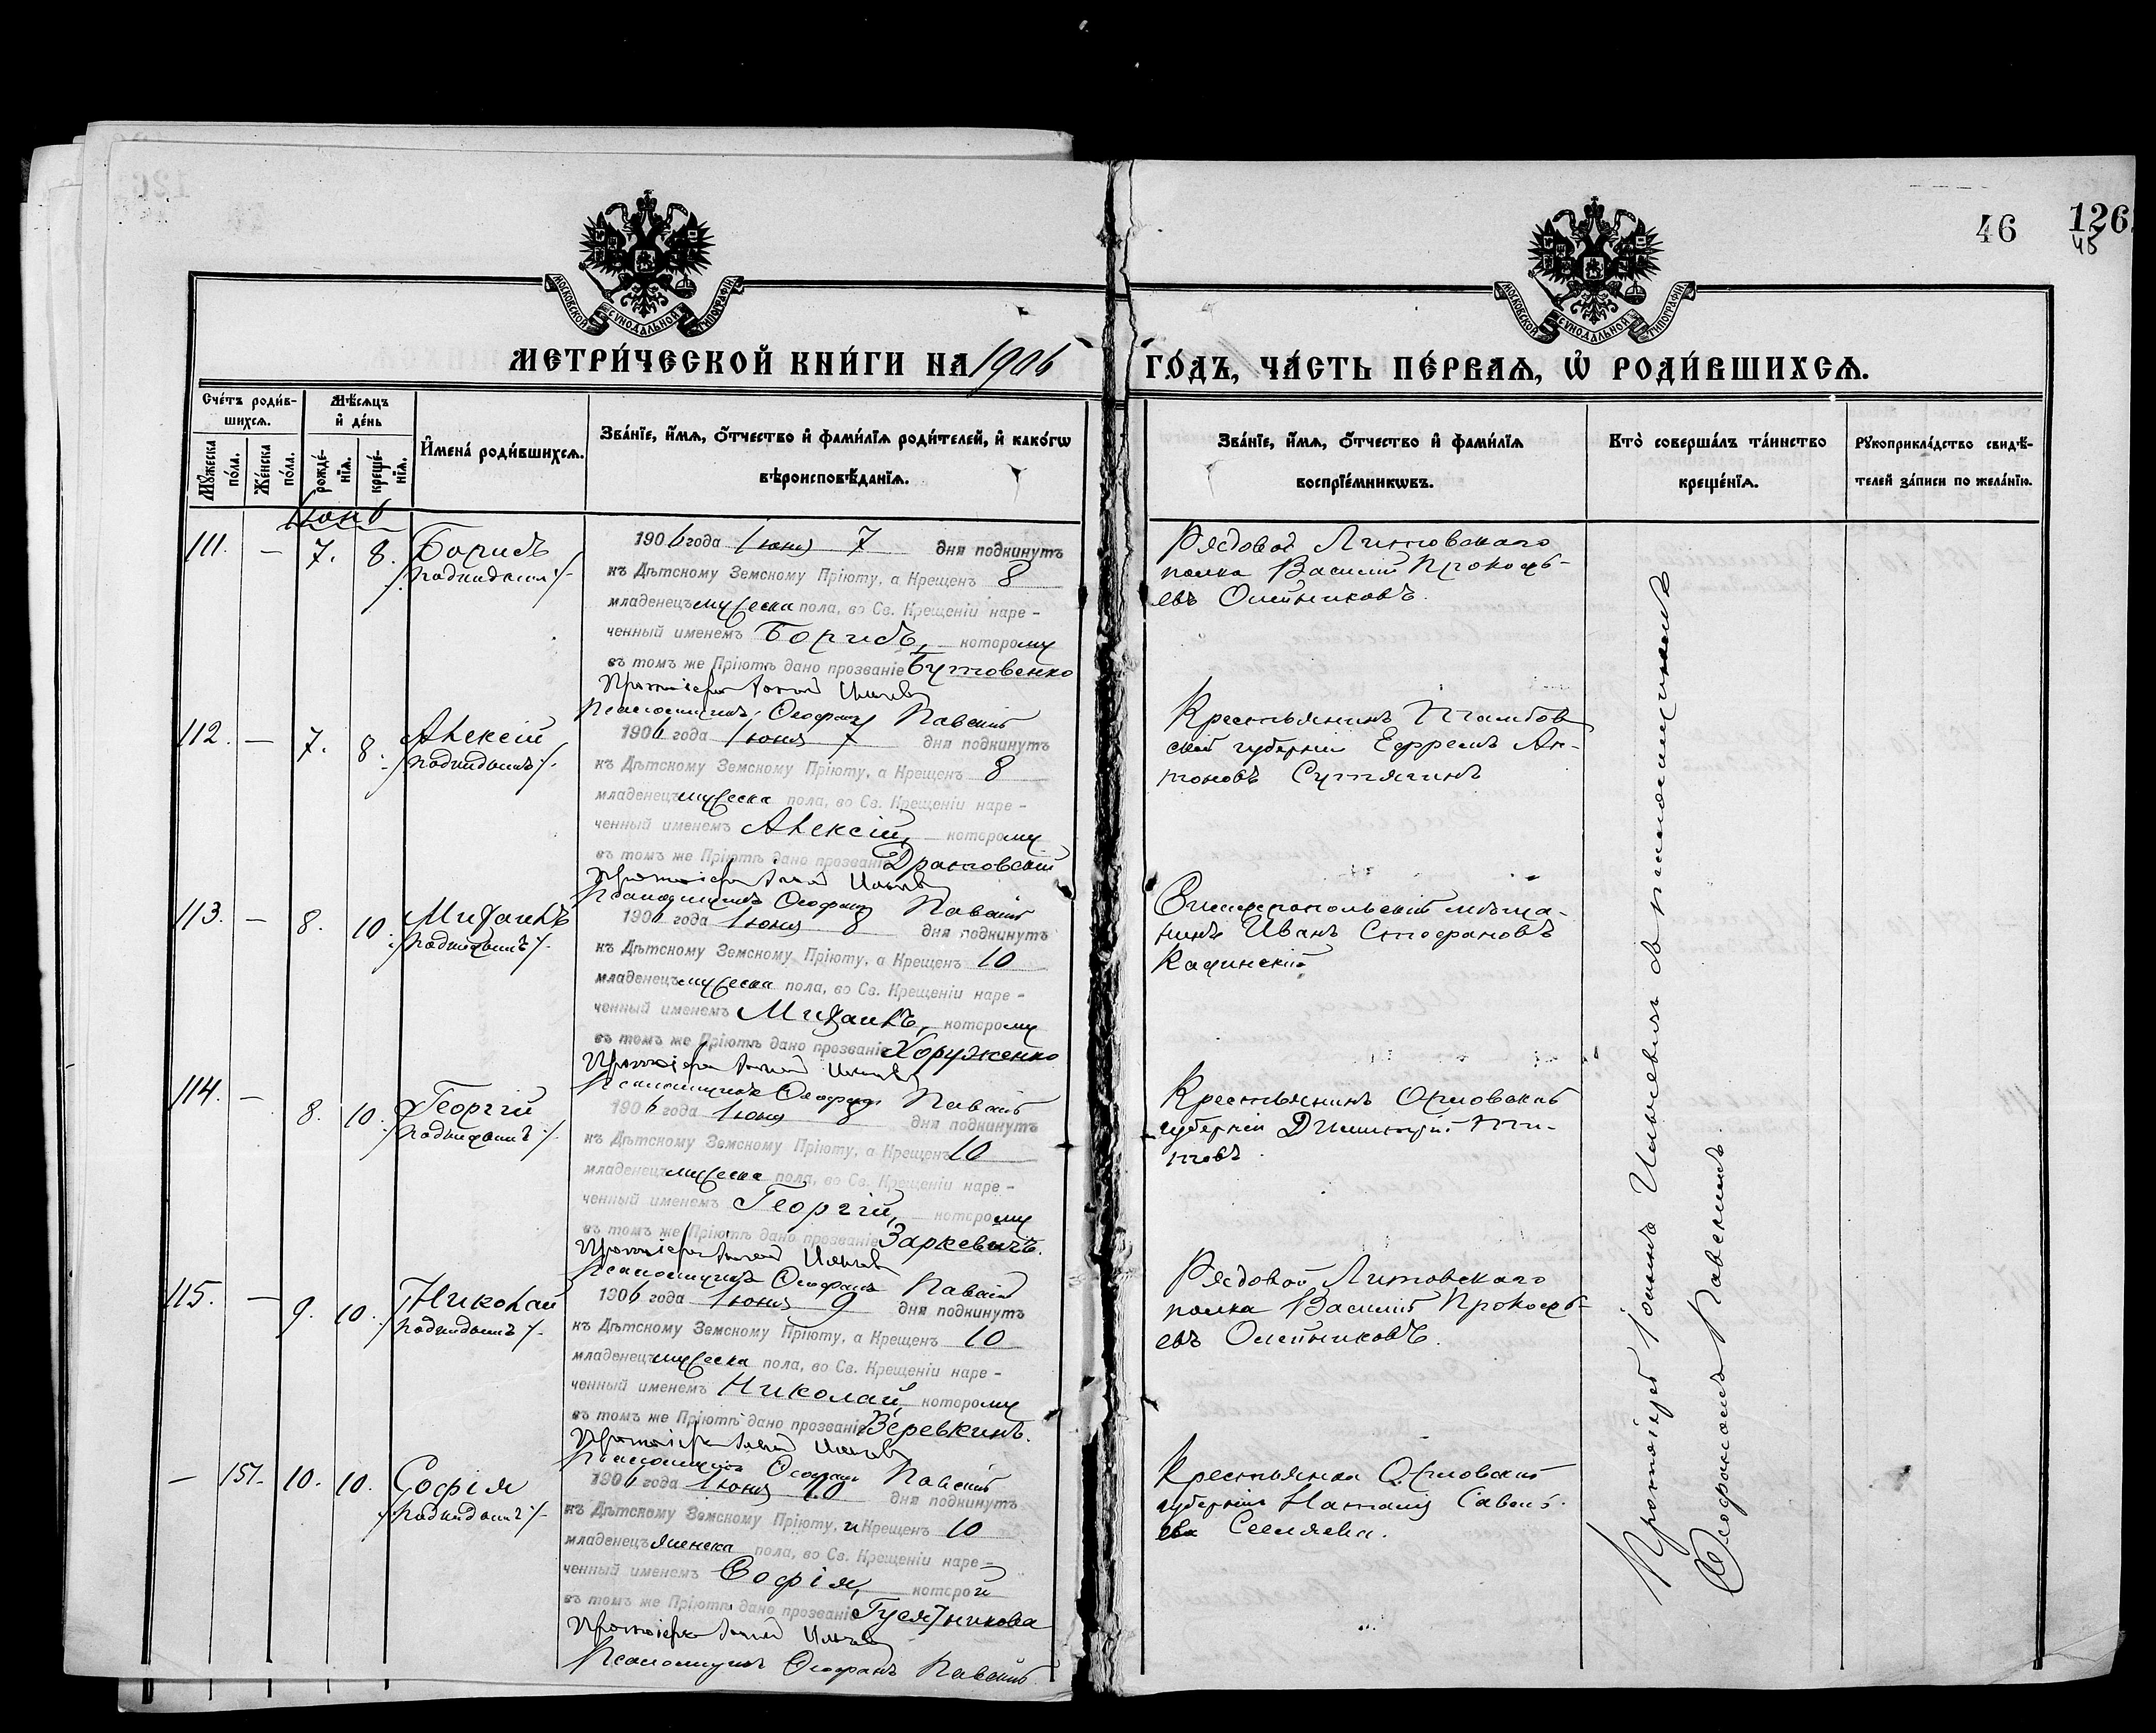 46
126
45
МОСКОВСКОЙ СѴНОДАЛЬНОЙ ТИПОГРАФІИ
МОСКОВСКОЙ СѴНОДАЛЬНОЙ ТИПОГРАФІИ
МЕТРИ́ЧЕСКОЙ КНИ́ГИ НА 1906 ГО́ДЪ, ЧА́СТЬ ПЕ́РВАѦ, Ѡ҆ РОДИ́ВШИХСѦ.
Сче́тъ роди́в-
шихсѧ.
Мѣ́сѧцъ
и҆ де́нь
И҆мена̀ роди́вшихсѧ.
Зва́нїе, и҆́мѧ, ѻ҆́тчество и҆ фами́лїѧ роди́телей, и҆ како́гѡ
вѣроисповѣ́данїѧ.
Мꙋ́жеска
по́ла.
Же́нска
по́ла.
рожде́-
нїѧ.
креще́-
нїѧ.
Зва́нїе, и҆́мѧ, ѻ҆́тчество и҆ фами́лїѧ
воспрїе́мникѡвъ.
Кто̀ соверша́лъ та́инство
креще́нїѧ.
Рꙋкоприкла́дство свидѣ́-
телей за́писи по жела́нїю.
Іюнь
111. — 7. 8. Борисъ
/подкидышъ/.
1906 года Іюня 7 дня подкинутъ
къ Дѣтскому Земскому Пріюту, а Крещенъ 8
младенецъ мужеска пола, во Св. Крещеніи наре-
ченный именемъ Борисъ, которому
въ томъ же Пріютѣ дано прозваніе Бутовенко
Протоіерей Іоаннъ
Псаломщикъ Ѳеофанъ Павскій
Рядовой Литовскаго
полка Василій Прокофь-
евъ Олейниковъ.
112. — 7. 8. Алексій
/подкидышъ/.
1906 года Іюня 7 дня подкинутъ
къ Дѣтскому Земскому Пріюту, а Крещенъ 8
младенецъ мужеска пола, во Св. Крещеніи наре-
ченный именемъ Алексій, которому
въ томъ же Пріютѣ дано прозваніе Драновскій
Протоіерей Іоаннъ
Псаломщикъ Ѳеофанъ Павскій
Крестьянинъ Тамбов
ской губерніи Ефремъ Ан-
тоновъ Сутягинъ
113. — 8. 10. Михаилъ
/подкидышъ/.
1906 года Іюня 8 дня подкинутъ
къ Дѣтскому Земскому Пріюту, а Крещенъ 10
младенецъ мужеска пола, во Св. Крещеніи наре-
ченный именемъ Михаилъ, которому
въ томъ же Пріютѣ дано прозваніе Хоруженко
Протоіерей Іоаннъ
Псаломщикъ Ѳеофанъ Павскій
Симферопольскій мѣща-
нинъ Иванъ Стефановъ
114. — 8. 10. Георгій
/подкидышъ/.
1906 года Іюня 8 дня подкинутъ
къ Дѣтскому Земскому Пріюту, а Крещенъ 10
младенецъ мужеска пола, во Св. Крещеніи наре-
ченный именемъ Георгій, которому
въ томъ же Пріютѣ дано прозваніе Заркевичъ.
Протоіерей Іоаннъ
Псаломщикъ Ѳеофанъ Павскій
Крестьянинъ Орловской
губерніи Димитрій Ти-
товъ.
115. — 9. 10. Николай
/подкидышъ/.
1906 года Іюня 9 дня подкинутъ
къ Дѣтскому Земскому Пріюту, а Крещенъ 10
младенецъ мужеска пола, во Св. Крещеніи наре-
ченный именемъ Николай, которому
въ томъ же Пріютѣ дано прозваніе Веревкинъ.
Протоіерей Іоаннъ
Псаломщикъ Ѳеофанъ Павскій
Рядовой Литовскаго
полка Василій Прокофь-
евъ Олейниковъ.
— 151. 10. 10. Софія
/подкидышъ/.
1906 года Іюня 10 дня подкинутъ
къ Дѣтскому Земскому Пріюту, и Крещенъ 10
младенецъ женска пола, во Св. Крещеніи наре-
ченный именемъ Софія, которой
въ томъ же Пріютѣ дано прозваніе
Протоіерей Іоаннъ
Псаломщикъ Ѳеофанъ Павскій
Крестьянка Орловской
губерніи Наталія Савель-
ева
Протоіерей Іоаннъ съ псаломщикомъ
Ѳеофаномъ Павскимъ.